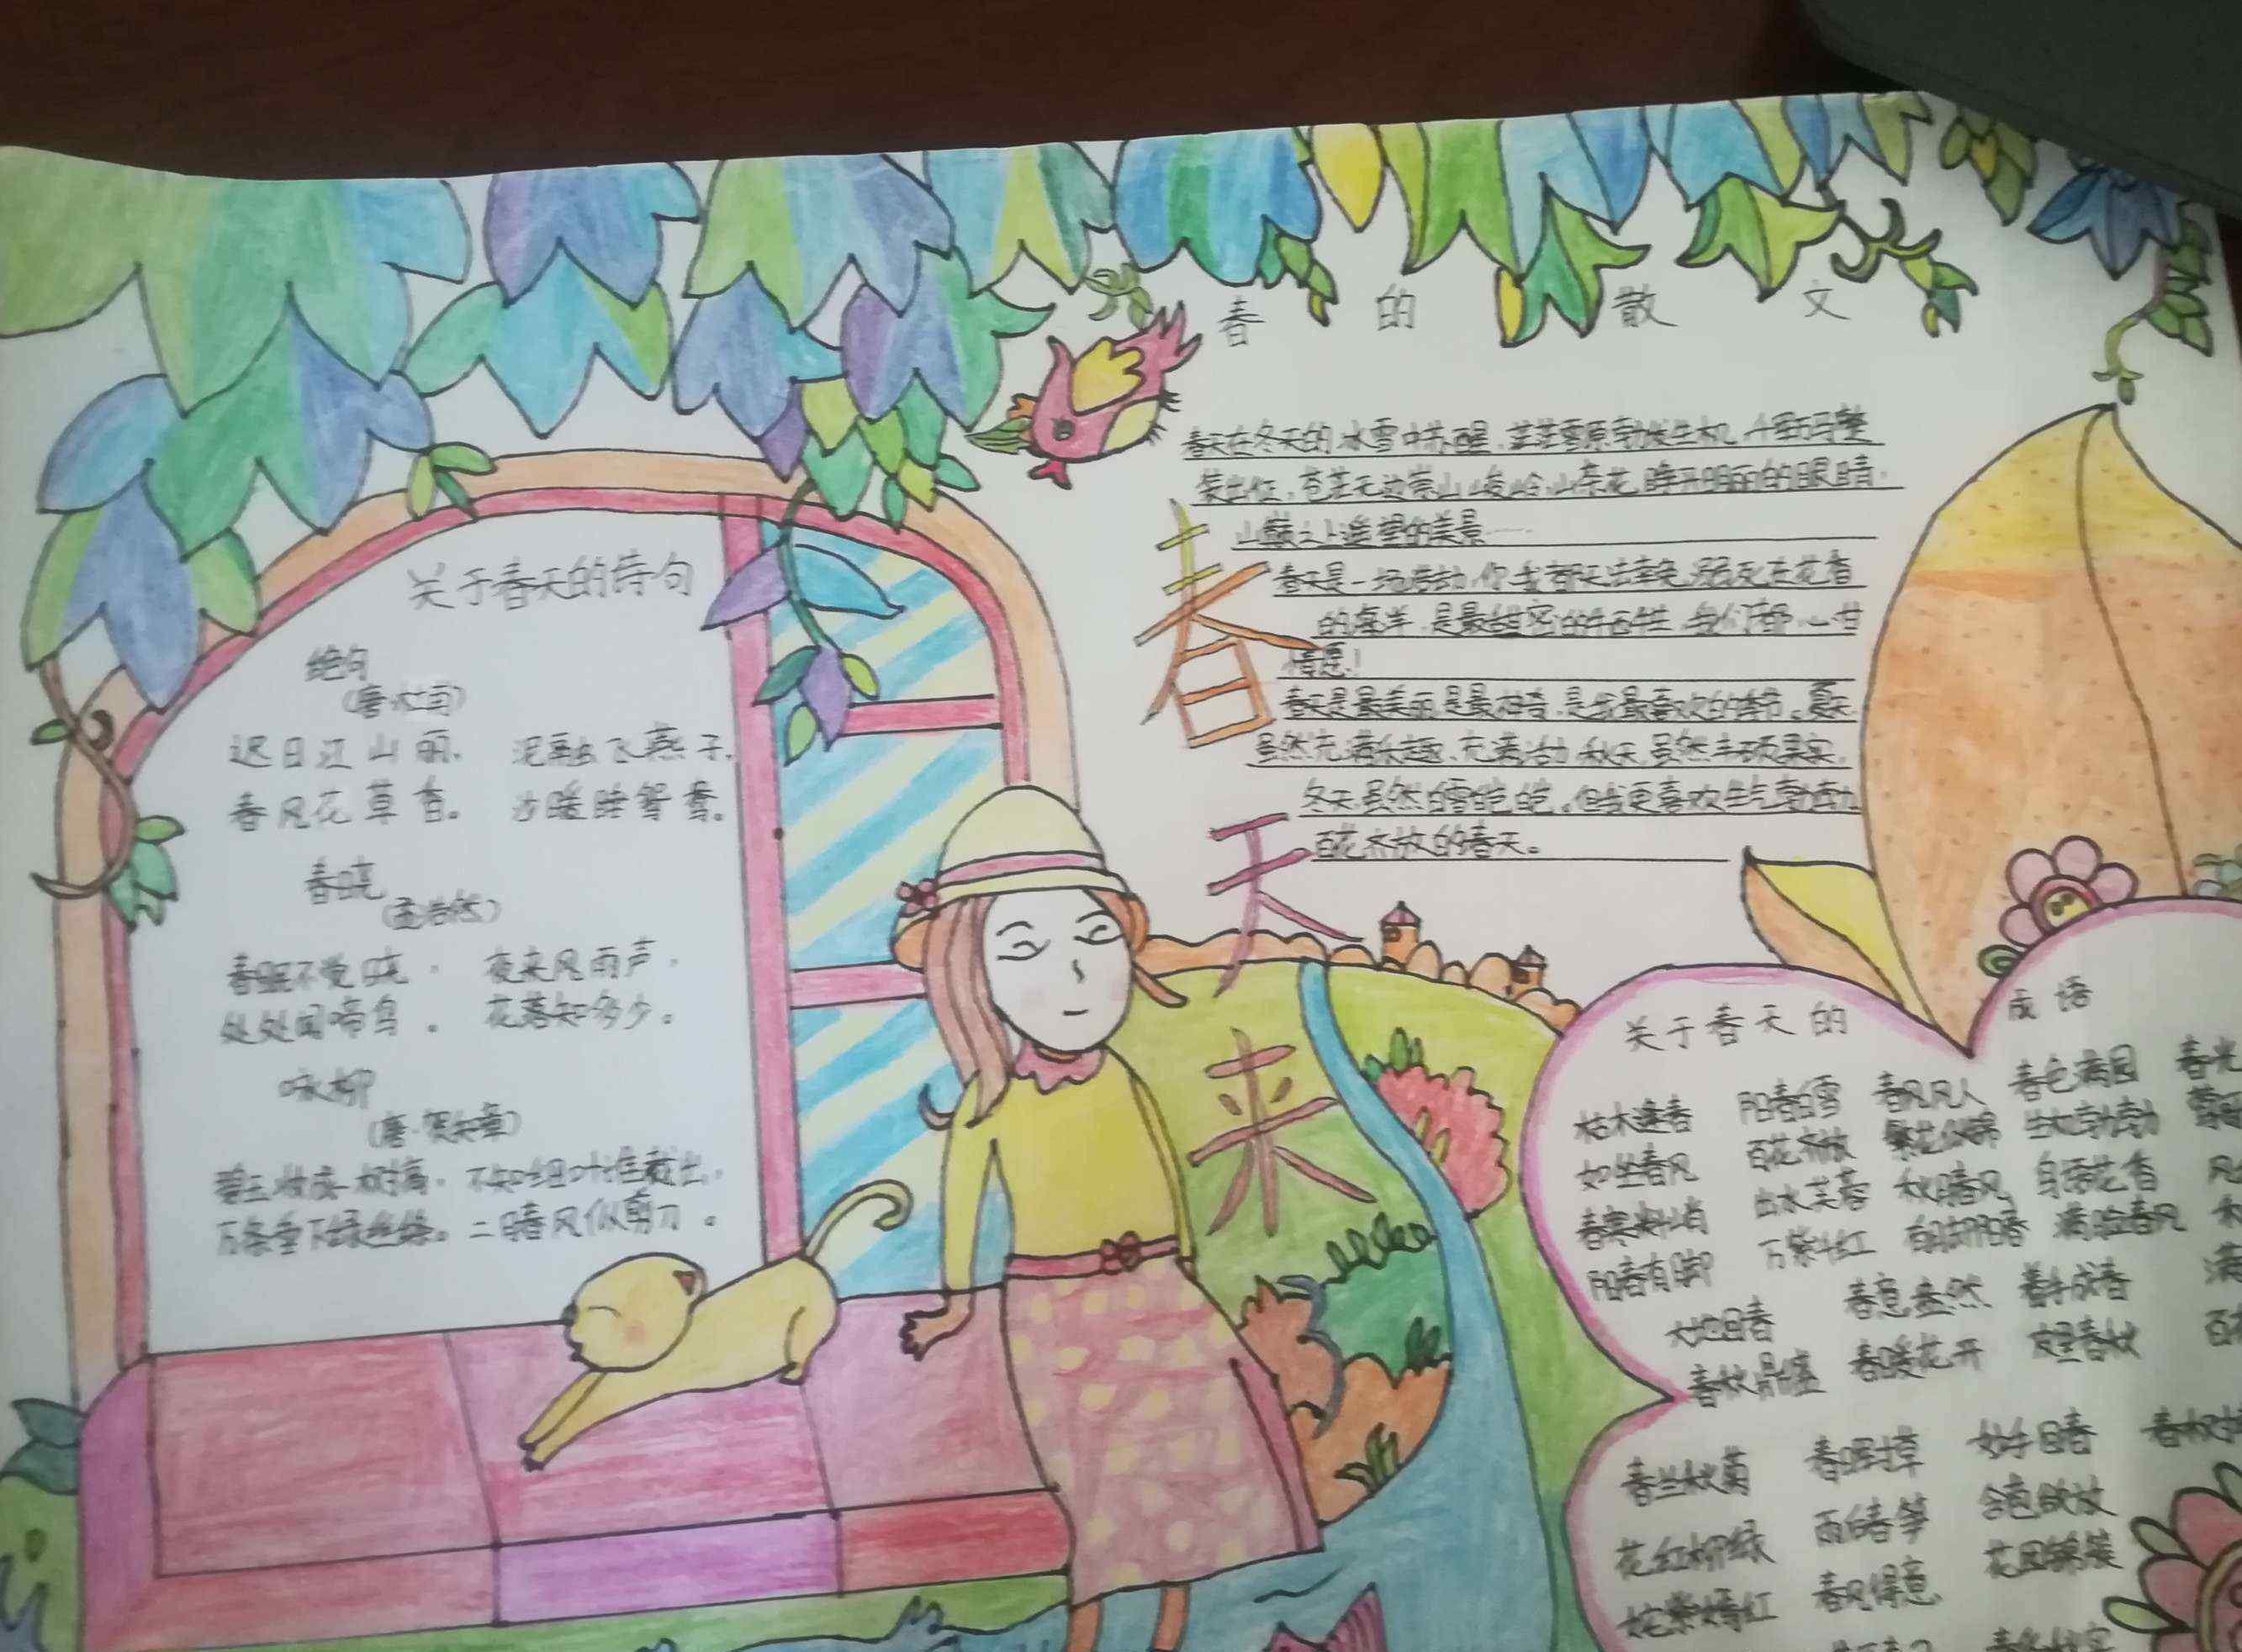 春的散文
春天在冬天的冰雪中苏醒，茫茫雪原勃发生机，
苍茫无边崇山峻岭，山茶花，睁开明丽的眼睛，
山巅之上遥望的美景……
春天是一场
的海洋，是最甜密的牺牲，我们都心甘
情愿！
春天是最美丽是最神奇，是我最喜欢的季节。夏天
虽然充满乐趣，充满活力，秋天，虽然丰硕果实，
冬天虽然白雪皑皑，但我更喜欢生气勃勃
百花齐放的春天。
春天来
关于春天的诗句
绝句
(唐·杜甫)
迟日江山丽，泥融飞燕子，
春风花草香。沙暖睡鸳鸯。
春晓
(孟浩然)
春眠不觉晓，夜来风雨声，
处处闻啼鸟。花落知多少。
咏柳
(唐·贺知章)
碧玉妆成一树高，不知细叶谁裁出，
万条垂下绿丝绦。二月春风似剪刀。
关于春天的成语
枯木逢春 阳春白雪 春风风人 春色满园 春光
如坐春风 百花齐放 繁花似锦 生机勃勃
春寒料峭 出水芙蓉 秋月春风 鸟语花香
阳春有脚 万紫千红 白朗阳春 满脸春风
大地回春 春意盎然 着手成春 满
春秋鼎盛 春暖花开 皮里春秋 百
春兰秋菊 春晖寸草 妙手回春
花红柳绿 雨后春笋 含苞欲放
姹紫嫣红 春风得意 花团锦簇